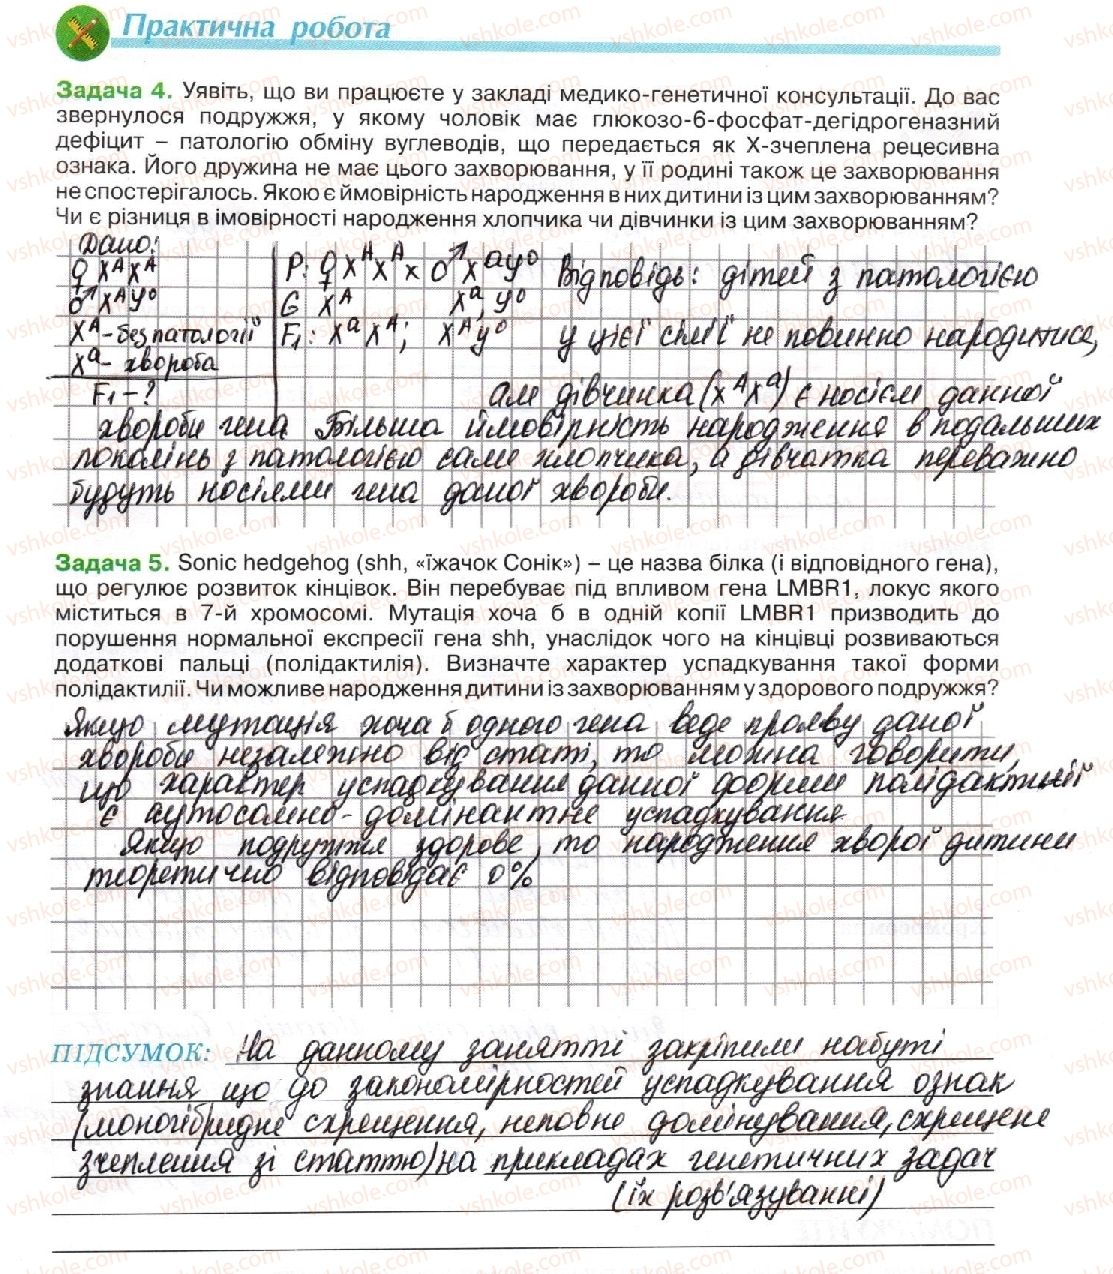 Практична робота
Задача 4. Уявіть, що ви працюєте у закладі медико-генетичної консультації. До вас
звернулося подружжя, у якому чоловік має глюкозо-6-фосфат-дегідрогеназний
дефіцит – патологію обміну вуглеводів, що передається як Х-зчеплена рецесивна
ознака. Його дружина не має цього захворювання, у її родині також це захворювання
не спостерігалось. Якою є ймовірність народження в них дитини із цим захворюванням?
Чи є різниця в імовірності народження хлопчика чи дівчинки із цим захворюванням?
Дано:
♀ XᴬXᴬ
♂ XᴬY⁰
Xᴬ - без патології
Xᵃ - хвороба
F₁ - ?
P: ♀ XᴬXᴬ × ♂ XᵃY⁰
G Xᴬ Xᵃ, Y⁰
F₁: XᵃXᴬ; XᴬY⁰
Відповідь: дітей з патологією
у цієї сім'ї не повинно народитися,
але дівчинка (XᴬXᵃ) є носієм данної
хвороби гена Більша ймовірність народження в подальших
поколінь з патологією саме хлопчика, а дівчатка переважно
будуть носіями гена даної хвороби.
Задача 5. Sonic hedgehog (shh, «їжачок Сонік») – це назва білка (і відповідного гена),
що регулює розвиток кінцівок. Він перебуває під впливом гена LMBR1, локус якого
міститься в 7-й хромосомі. Мутація хоча б в одній копії LMBR1 призводить до
порушення нормальної експресії гена shh, унаслідок чого на кінцівці розвиваються
додаткові пальці (полідактилія). Визначте характер успадкування такої форми
полідактилії. Чи можливе народження дитини із захворюванням у здорового подружжя?
Якщо мутація хоча б одного гена веде прояву даної
хвороби незалежно від статі, то можна говорити,
що характер успадкування данної форми полідактилії
є аутосомно-домінантне успадкування
Якщо подружжя здорове, то народження хворої дитини
теоретично відповідає 0%
ПІДСУМОК: На данному занятті закріпили набуті
знання що до закономірностей успадкування ознак
(моногібридне схрещення, неповне домінування, схрещене
зчеплення зі статтю) на прикладах генетичних задач
(їх розв'язуванні)